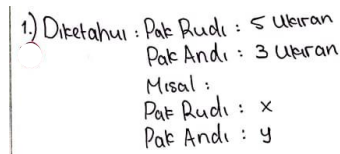 1.) Diketahui : Pak Rudi : 5 Ukiran
Pak Andi : 3 Ukiran
Misal :
Pak Rudi : x
Pak Andi : y